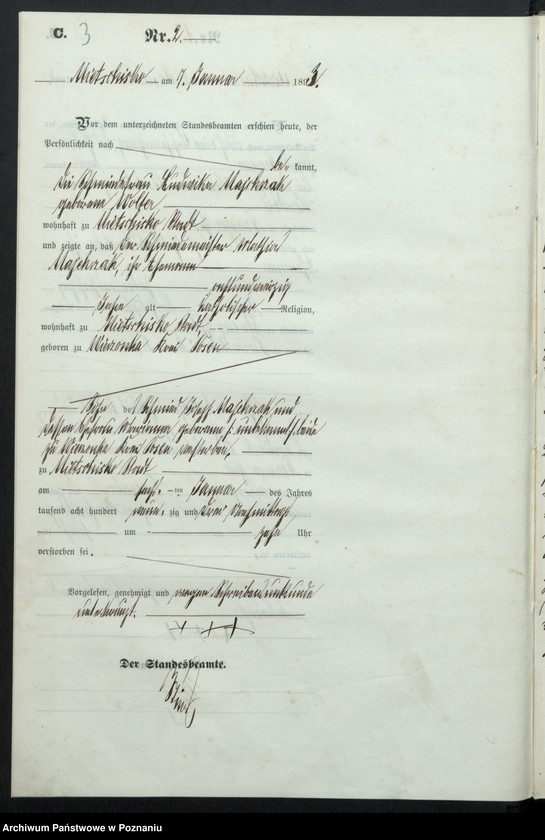 C. 3 Nr. 2.
Mietschisko am 7. Januar 1893.
Vor dem unterzeichneten Standesbeamten erschien heute, der
Persönlichkeit nach
be kannt,
die Schmiedefrau Ludwika Majchrzak
geborene Wolter
wohnhaft zu Mietschisko Stadt
und zeigte an, daß der Schmiedemeister
Majchrzak, ihr Ehemann
achtundvierzig
Jahre alt katholischer Religion,
wohnhaft zu Mietschisko Stadt,
geboren zu Wierzonka Kreis Posen
Sohn des Schmied Josef Majchrzak und
dessen Ehefrau geborene (: unbekannt :), beide
zu Wierzonka Kreis Posen verstorben,
zu Mietschisko Stadt
am sechs. ten Januar des Jahres
tausend acht hundert neun. zig und drei Vormittags
um zehn Uhr
verstorben sei.
Vorgelesen, genehmigt und wegen Schreibensunkunde
unterkreuzt.
+++
Der Standesbeamte.
Archiwum Państwowe w Poznaniu